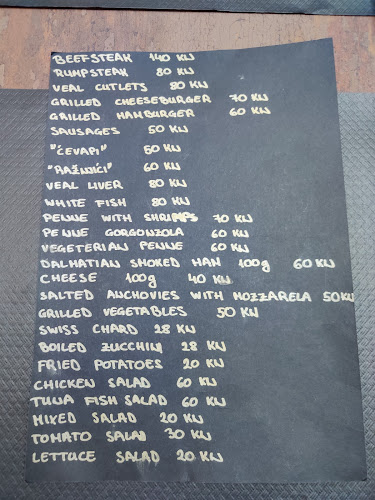 BEEFSTEAK 140 KN
RUMPSTEAK 80 KN
VEAL CUTLETS 80 KN
GRILLED CHEESEBURGER 70 KN
GRILLED HAMBURGER 60 KN
SAUSAGES 50 KN
"ĆEVAPI" 60 KN
"RAŽNJIĆI" 60 KN
VEAL LIVER 80 KN
WHITE FISH 80 KN
PENNE WITH SHRIMPS 70 KN
PENNE GORGONZOLA 60 KN
VEGETERIAN PENNE 60 KN
DALMATIAN SMOKED HAM 100g 60 KN
CHEESE 100g 40 KN
SALTED ANCHOVIES WITH MOZZARELA 50KN
GRILLED VEGETABLES 50 KN
SWISS CHARD 28 KN
BOILED ZUCCHINI 28 KN
FRIED POTATOES 20 KN
CHICKEN SALAD 60 KN
TUNA FISH SALAD 60 KN
MIXED SALAD 20 KN
TOMATO SALAD 30 KN
LETTUCE SALAD 20 KN